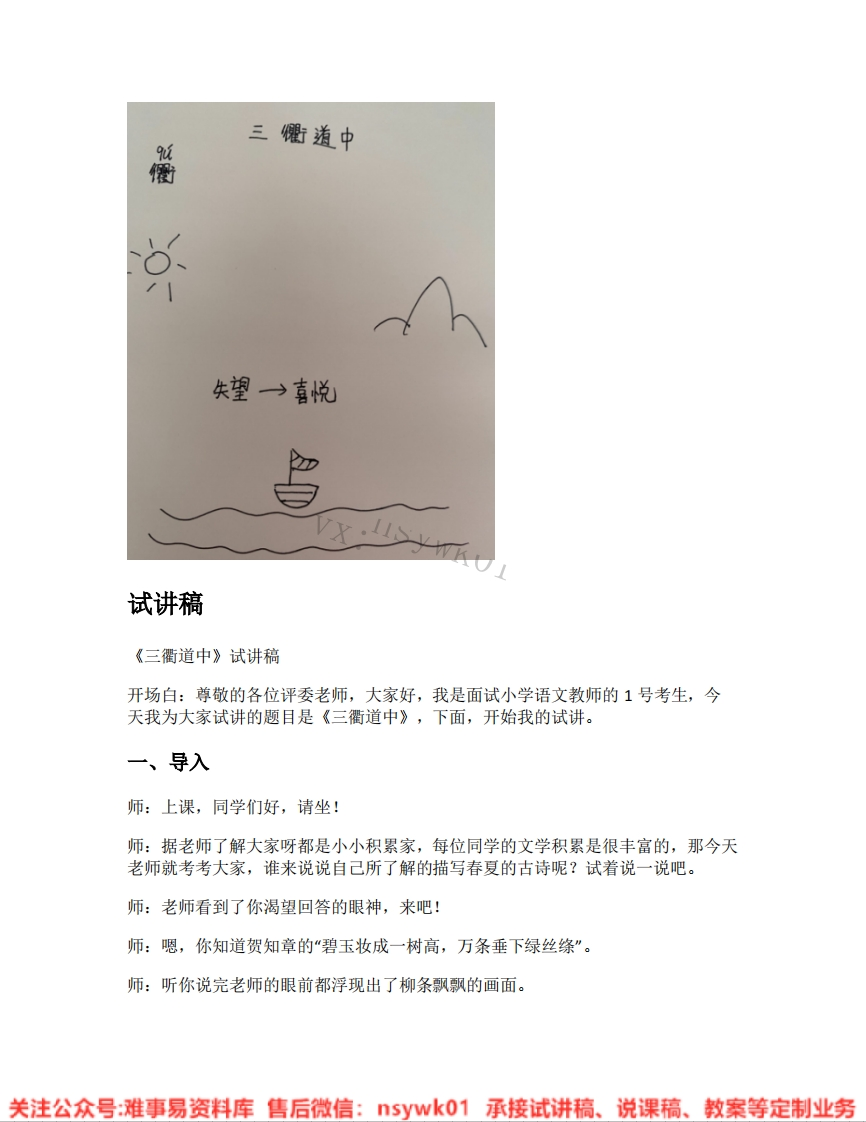 三 衢道中
qú
衢
失望→喜悦
VX:nsywk01
试讲稿
《三衢道中》试讲稿
开场白：尊敬的各位评委老师，大家好，我是面试小学语文教师的 1 号考生，今
天我为大家试讲的题目是《三衢道中》，下面，开始我的试讲。
一、导入
师：上课，同学们好，请坐！
师：据老师了解大家呀都是小小积累家，每位同学的文学积累是很丰富的，那今天
老师就考考大家，谁来说说自己所了解的描写春夏的古诗呢？试着说一说吧。
师：老师看到了你渴望回答的眼神，来吧！
师：嗯，你知道贺知章的“碧玉妆成一树高，万条垂下绿丝绦”。
师：听你说完老师的眼前都浮现出了柳条飘飘的画面。
关注公众号:难事易资料库 售后微信：nsywk01 承接试讲稿、说课稿、教案等定制业务